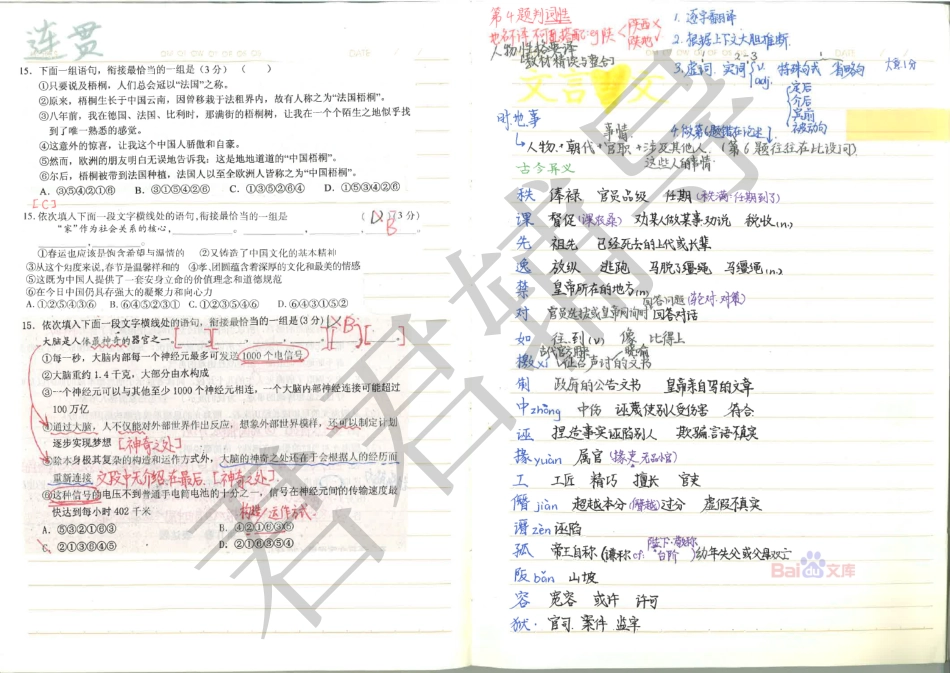 连贯
15．下面一组语句，衔接最恰当的一组是（3分）（　　）
①只要说及梧桐，人们总会冠以“法国”之称。
②原来，梧桐生长于中国云南，因曾移栽于法租界内，故有人称之为“法国梧桐”。
③八年前，我在德国、法国、比利时，那满街的梧桐树，让我在一个个陌生之地似乎找
到了唯一熟悉的感觉。
④这意外的惊喜，让我这个中国人骄傲和自豪。
⑤然而，欧洲的朋友明白无误地告诉我：这是地地道道的“中国梧桐”。
⑥尔后，梧桐被带到法国种植，法国人以至全欧洲人皆称之为“中国梧桐”。
A．③⑤④②①⑥　B．③①⑤④②⑥　C．①③⑤②⑥④　D．①⑤③④②⑥
[C]
15.依次填入下面一段文字横线处的语句,衔接最恰当的一组是（3分）
B
“家”作为社会关系的核心，
①春运也应该是饱含希望与温情的　②又铸造了中国文化的基本精神
③从这个角度来说,春节是温馨祥和的　④孝、团圆蕴含着深厚的文化和最美的情感
⑤这既为中国人提供了一套安身立命的价值理念和道德规范
⑥在今日中国仍具存强大的凝聚力和向心力
A.①②⑤④③⑥　B.⑥④⑤②③①　C.①②③⑤④⑥　D.⑥④③①⑤②
15．依次填入下面一段文字横线处的语句，衔接最恰当的一组是(3分) B
大脑是人体最神奇的器官之一．
①每一秒，大脑内部每一个神经元最多可发送1000个电信号
②大脑重约1.4千克，大部分由水构成
③一个神经元可以与其他至少1000个神经元相连，一个大脑内部神经连接可能超过
100万亿
④通过大脑，人不仅能对外部世界作出反应，想象外部世界模样，还可以制定计划
逐步实现梦想 [神奇之处]
⑤除本身极其复杂的构造和运作方式外，大脑的神奇之处还在于会根据人的经历而
重新连接 文段中无介绍,在最后. [神奇之处]
⑥这种信号的电压不到普通手电筒电池的十分之一，信号在神经元间的传输速度最
快达到每小时402千米
构造/运作方式.
A．⑤③②①⑥③　B．④②①⑥③⑤
C．②①③⑥④⑤　D．②①⑥③⑤④
第4题判词性
陕西×
陕地
人物性格要译
[教材精读与整合]
1. 逐字翻译
2. 根据上下文大胆推断.
3. 虚词. 实词 v. adj. 特殊句式 省略句 大意1分
定后
介后
宾前
被动句
文言文
时.地.事
事情.
4.做第6题错在论述
人物.+朝代+官职+涉及其他人. (第6题往往在此设问)
这些人的事情.
古今异义
秩 俸禄 官员品级 任期 (秩满:任期到了)
课 督促(课农桑) 劝某人做某事.劝说 税收(n.)
先 祖先 已经死去的上代或长辈
逸 放纵 逃跑 马脱了缰绳
禁 皇帝所在的地方(n)
回答问题
对 回答 对话
如 往.到(v) 像 比得上
檄xí 声讨的文书
制 政府的公告文书 皇帝亲自写的文章
中zhòng 中伤 诬蔑使别人受伤害 符合
诬 捏造事实诬陷别人 欺骗.言语不真实
掾yuàn 属官
工 工匠 精巧 擅长 官吏
僭jiàn 超越本分(僭越)过分 虚假不真实
谮zèn 诬陷
陛下:敬称
孤 帝王自称 (谦称 cf: 台阶) 幼年失父或父母双亡
阪bǎn 山坡
容 宽容 或许 许可
狱. 官司. 案件. 监牢
Bai du 文库
君君辅导